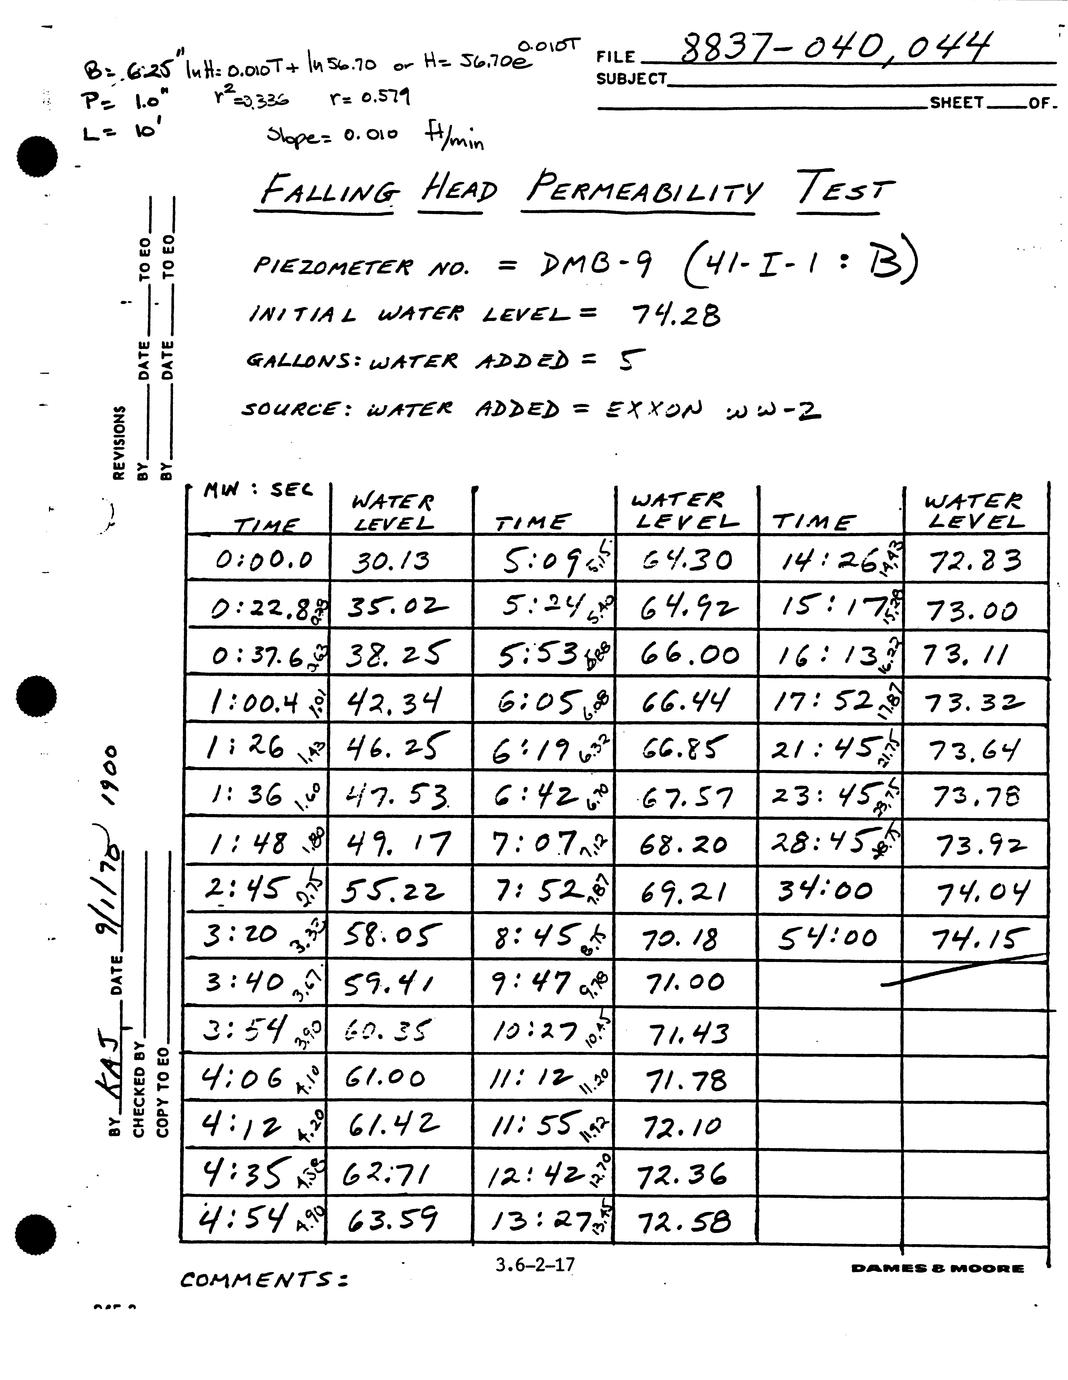 B= .6.25" lnH= 0.010T + ln 56.70 or H= 56.70e^0.010T
P= 1.0" r²=0.336 r= 0.579
L= 10' Slope= 0.010 ft/min
FILE 8837-040,044
SUBJECT
SHEET OF
FALLING HEAD PERMEABILITY TEST
PIEZOMETER NO. = DMB-9 (41-I-1 : B)
INITIAL WATER LEVEL = 74.28
GALLONS: WATER ADDED = 5
SOURCE: WATER ADDED = EXXON WW-2
REVISIONS
BY DATE TO EO
BY DATE TO EO
BY KAJ DATE 9/1/78 1900
CHECKED BY
COPY TO EO
MIN : SEC
TIME WATER LEVEL TIME WATER LEVEL TIME WATER LEVEL
0:00.0 30.13 5:09 5.15 64.30 14:26 14.43 72.83
0:22.8 0.38 35.02 5:24 5.40 64.92 15:17 15.28 73.00
0:37.6 0.63 38.25 5:53 5.88 66.00 16:13 16.22 73.11
1:00.4 1.01 42.34 6:05 6.08 66.44 17:52 17.87 73.32
1:26 1.43 46.25 6:19 6.32 66.85 21:45 21.75 73.64
1:36 1.60 47.53 6:42 6.70 67.57 23:45 23.75 73.78
1:48 1.80 49.17 7:07 7.12 68.20 28:45 28.75 73.92
2:45 2.75 55.22 7:52 7.87 69.21 34:00 74.04
3:20 3.33 58.05 8:45 8.75 70.18 54:00 74.15
3:40 3.67 59.41 9:47 9.78 71.00
3:54 3.90 60.35 10:27 10.45 71.43
4:06 4.10 61.00 11:12 11.20 71.78
4:12 4.20 61.42 11:55 11.92 72.10
4:35 4.58 62.71 12:42 12.70 72.36
4:54 4.90 63.59 13:27 13.45 72.58
3.6-2-17
DAMES & MOORE
COMMENTS: